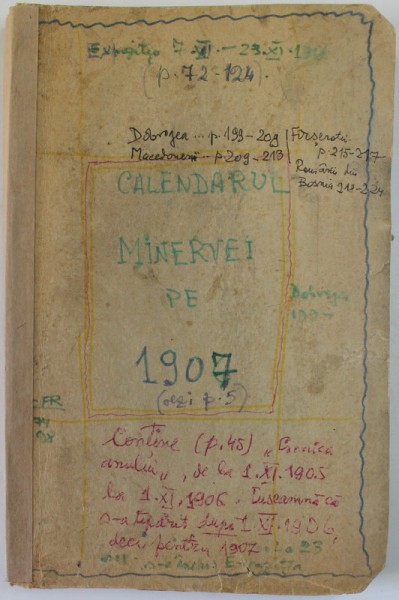 Expoziția 7.VI.–23.XI.190
(p.72-124).
Dobrogea... p.199-209
Macedoneni...p.209-213
Fârșeroții
p.215-217
Românii din
Bosnia 218-224
CALENDARUL
MINERVEI
PE
1907
(vezi p.5)
Dobrogea
Conține (p.45) „Cronica
anului„, de la 1.XI.1905
la 1.XI.1906. Înseamnă că
s-a tipărit după 1.XI.1906,
deci pentru 1907. La 23
s-a închis Expoziția